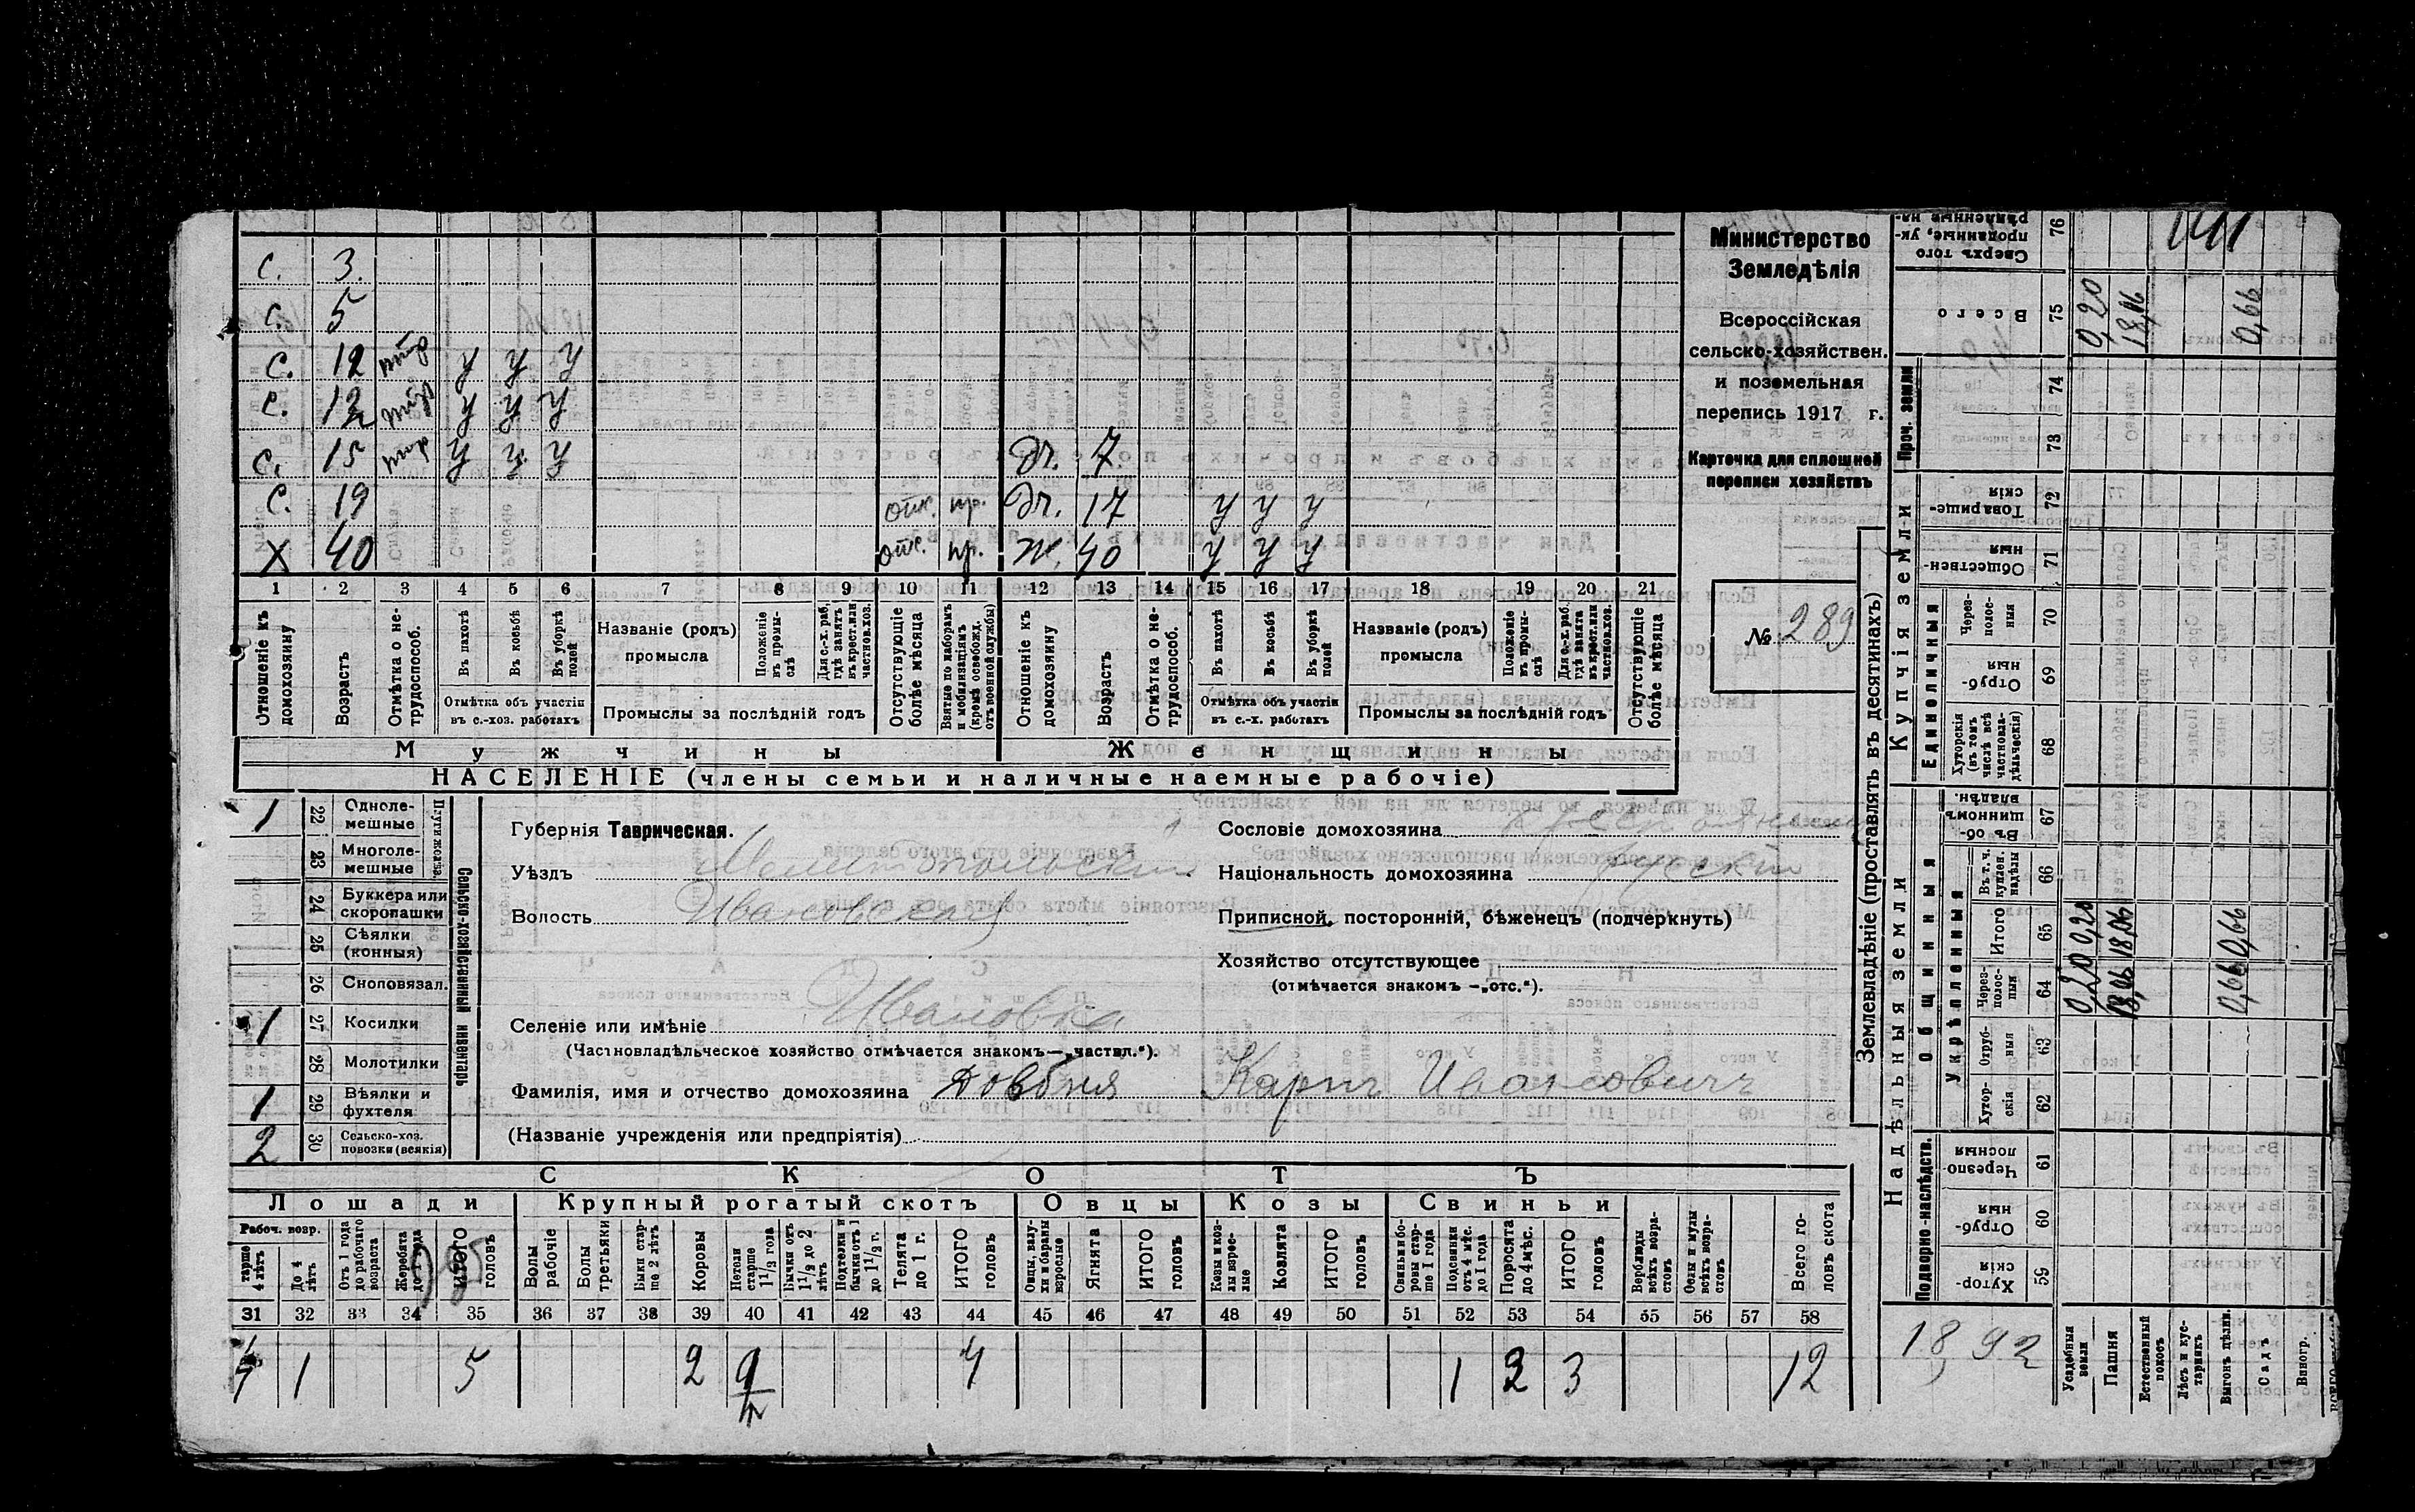 С. 3.
С. 5
С. 12 у у у
С. 12 у у у
С. 15 у у у Дч. 7.
С. 19 отс. пр. Дч. 17 у у у
Х 40 отс. пр. Ж. 40 у у у
1 2 3 4 5 6 7 8 9 10 11 12 13 14 15 16 17 18 19 20 21
Отношеніе къ домохозяину
Возрастъ
Отмѣтка о нетрудоспособ.
Въ пахотѣ
Въ косьбѣ
Въ уборкѣ полей
Отмѣтка объ участіи въ с.-хоз. работахъ
Названіе (родъ) промысла
Положеніе въ промыслѣ
Для с.-х. раб. гдѣ занятъ въ крест. или частнов. хоз.
Промыслы за послѣдній годъ
Отсутствующіе болѣе мѣсяца
Взятые по наборамъ и мобилизаціямъ (кромѣ освобожд. отъ военной службы)
Отношеніе къ домохозяину
Возрастъ
Отмѣтка о нетрудоспособ.
Въ пахотѣ
Въ косьбѣ
Въ уборкѣ полей
Отмѣтка объ участіи въ с.-х. работахъ
Названіе (родъ) промысла
Положеніе въ промыслѣ
Для с.-х. раб. гдѣ занята въ крест. или частнов. хоз.
Промыслы за послѣдній годъ
Отсутствующіе болѣе мѣсяца
Мужчины Женщины
НАСЕЛЕНІЕ (члены семьи и наличные наемные рабочіе)
Министерство
Земледѣлія
Всероссійская
сельско-хозяйствен.
и поземельная
перепись 1917 г.
Карточка для сплошной
переписи хозяйствъ
№ 289
Сельско-хозяйственный инвентарь
1 22 Однолемешные
23 Многолемешные
24 Буккера или скоропашки
25 Сѣялки (конныя)
26 Сноповязал.
1 27 Косилки
28 Молотилки
1 29 Вѣялки и фухтеля
2 30 Сельско-хоз. повозки (всякія)
Губернія Таврическая.
Уѣздъ Мелитопольскій
Волость Ивановская
Селеніе или имѣніе Ивановка
(Частновладѣльческое хозяйство отмѣчается знакомъ—„частвл.“).
Фамилія, имя и отчество домохозяина Довбня Карпъ Ивановичъ
(Названіе учрежденія или предпріятія)
Сословіе домохозяина
Національность домохозяина русскій
Приписной, посторонній, бѣженецъ (подчеркнуть)
Хозяйство отсутствующее
(отмѣчается знакомъ —„отс.“).
СКОТЪ
Лошади Крупный рогатый скотъ Овцы Козы Свиньи
Рабоч. возр.
старше 4 лѣтъ
До 4 лѣтъ
Отъ 1 года до рабочаго возраста
Жеребята до 1 года
ИТОГО головъ
Волы рабочіе
Волы третьяки
Быки старше 2 лѣтъ
Коровы
Нетели старше 1 1/2 года
Бычки отъ 1 1/2 до 2 лѣтъ
Подтелки и бычки отъ 1 до 1 1/2 г.
Телята до 1 г.
ИТОГО головъ
Овцы, валухи и бараны взрослые
Ягнята
ИТОГО головъ
Козы и козлы взрослые
Козлята
ИТОГО головъ
Свиньи и боровы старше 1 года
Подсвинки отъ 4 мѣс. до 1 года
Поросята до 4 мѣс.
ИТОГО головъ
Верблюды всѣхъ возрастовъ
Ослы и мулы всѣхъ возрастовъ
Всего головъ скота
31 32 33 34 35 36 37 38 39 40 41 42 43 44 45 46 47 48 49 50 51 52 53 54 55 56 57 58
1 5 2 4 1 2 3 12
Землевладѣніе (проставлять въ десятинахъ)
Надѣльныя земли Купчія земли Проч. земли
Подворно-наслѣдств.
Общинныя
Укрѣпленныя
Единоличныя
Хуторскія 59
Отрубныя 60
Черезполосныя 61
Хуторскія 62
Отрубныя 63
Черезполосныя 64 0,20 18,06 0,66
Итого 65 0,20 18,06 0,66
Въ т. ч. куплен. надѣлы 66
Въ общинномъ владѣн. 67
Хуторскія (въ томъ числѣ всѣ частновладѣльческія) 68
Отрубныя 69
Черезполосныя 70
Общественныя 71
Товарищескія 72
73
74
Всего 75 0,20 18,06 0,66
Сверхъ того проданные, укрѣпленные на 76
18,92
Усадебныя земли
Пашня
Естественный покосъ
Лѣсъ и кустарникъ
Выгонъ цѣлин.
Садъ
Виногр.
ВСЕГО